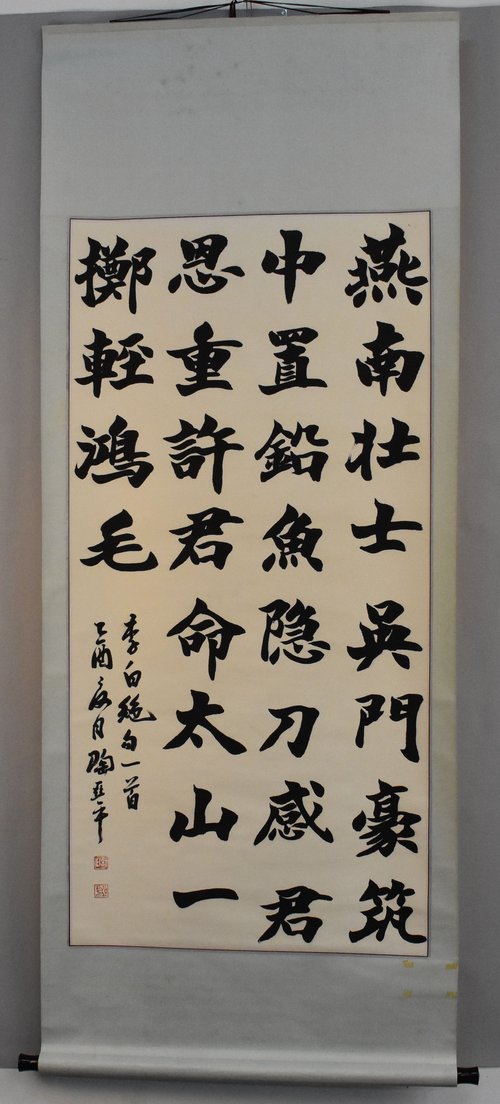 燕南壮士吳門豪筑
中置鉛魚隐刀感君
恩重許君命太山一
擲輕鴻毛
李白絶句一首
乙酉夜月陶亚平